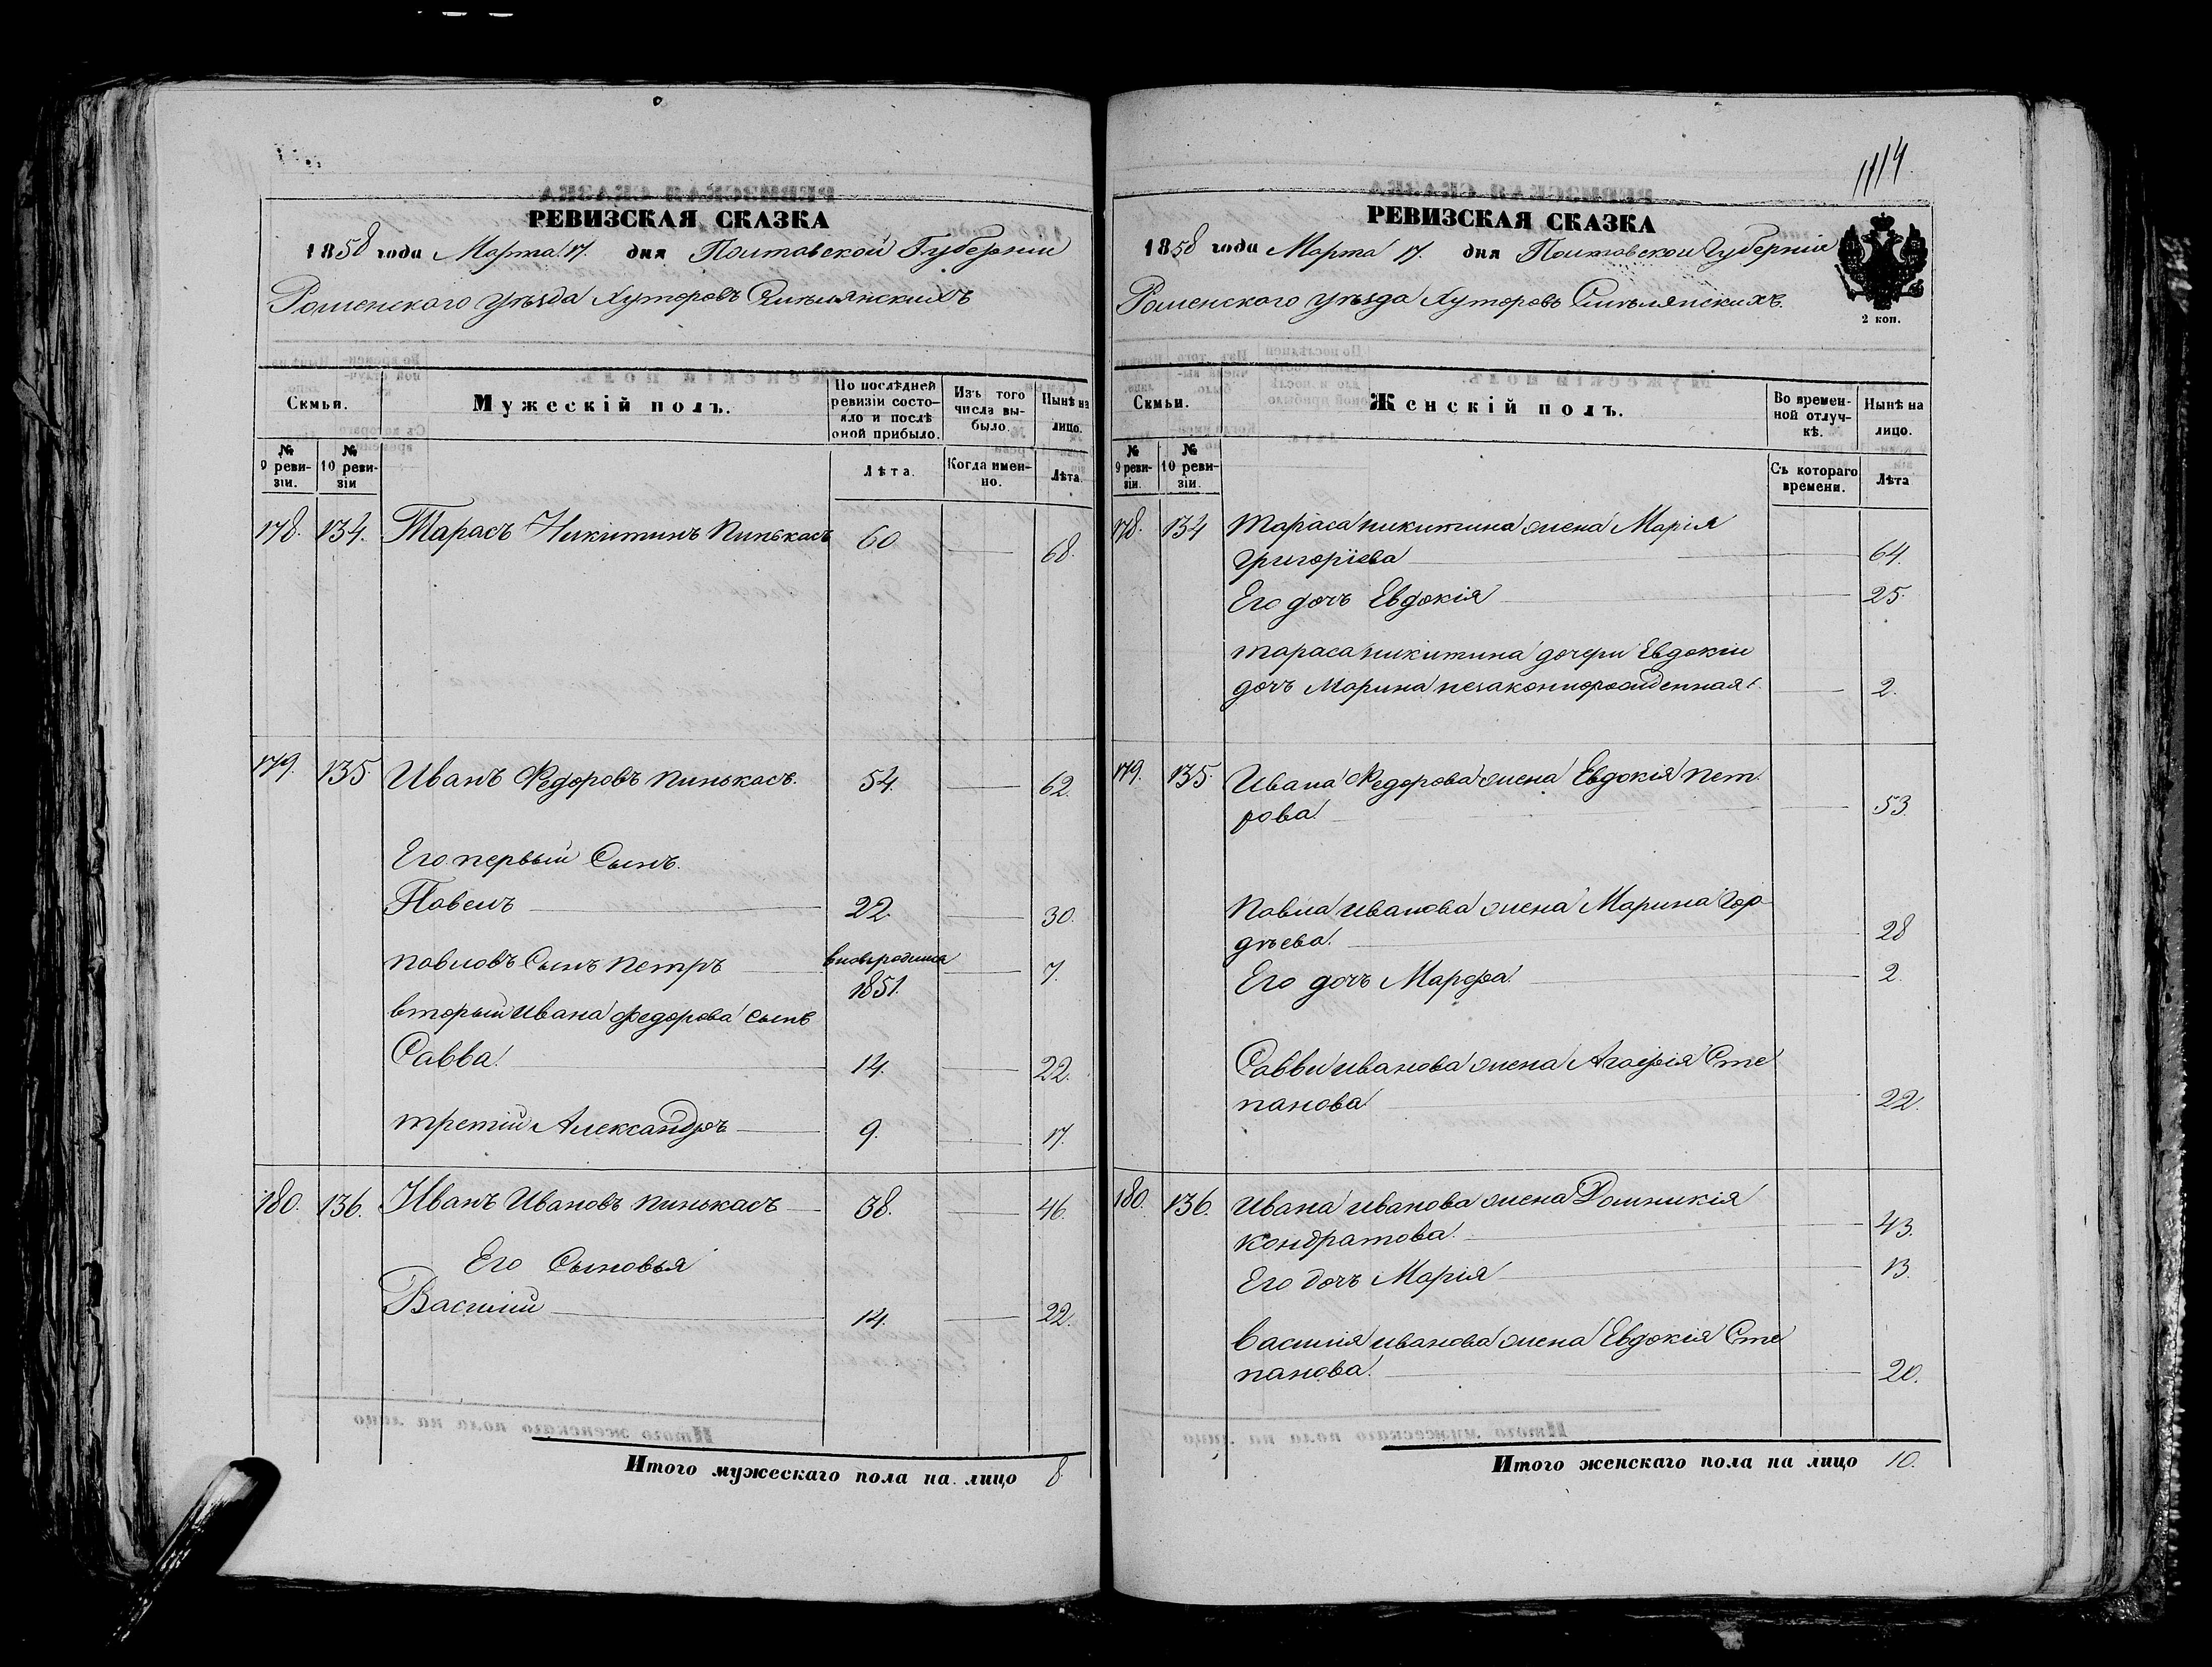 РЕВИЗСКАЯ СКАЗКА
1858 года Марта 17. дня Полтавской Губернии
Роменского уѣзда Хуторовъ Смѣлянскихъ
Семьи.
Мужескій полъ.
По послѣдней ревизіи состояло и послѣ оной прибыло.
Изъ того числа выбыло.
Нынѣ на лицо.
№ 9 ревизіи.
№ 10 ревизіи
Лѣта.
Когда именно.
Лѣта.
178. 134. Тарасъ Никитинъ Пинькасъ 60 68.
179. 135. Иванъ Федоровъ Пинькасъ. 54. 62.
Его первый Сынъ.
Павелъ 22. 30.
Павловъ Сынъ Петръ вновьродился 7.
1851.
вторый Ивана Федорова сынъ
Савва. 14. 22.
третій Александръ 9. 17.
180. 136. Иванъ Ивановъ Пинькасъ 38. 46.
Его Сыновья
Василій 14. 22.
Итого мужескаго пола на лицо 8.
1114.
РЕВИЗСКАЯ СКАЗКА
1858 года Марта 17. дня Полтавской Губерніи
Роменского уѣзда Хуторовъ Смѣлянскихъ.
2 коп.
Семьи.
Женскій полъ.
Во временной отлучкѣ.
Нынѣ на лицо.
№ 9 ревизіи.
№ 10 ревизіи.
Съ котораго времени.
Лѣта
178. 134 Тараса Никитина жена Марія
Григоріева 64.
Его дочъ Евдокія 25.
Тараса Никитина дочери Евдокіи
дочъ Марина незаконнорожденная 2.
179. 135. Ивана Федорова жена Евдокія Пет
рова 53.
Павла Иванова жена Марина Гор
дѣева. 28
Его дочъ Марфа 2.
Саввы Иванова жена Агафія Сте
панова 22.
180. 136. Ивана Иванова жена Домникія
Кондратова. 43.
Его дочъ Марія 13.
Василія Иванова жена Евдокія Сте
панова. 20.
Итого женскаго пола на лицо 10.